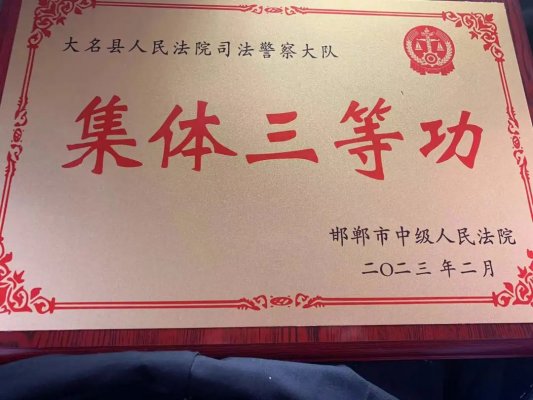 大名县人民法院司法警察大队
集体三等功
邯郸市中级人民法院
二〇二三年二月